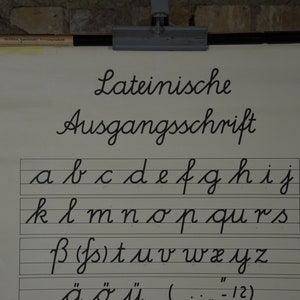 Lateinische
Ausgangsschrift
a b c d e f g h i j
k l m n o p qu r s
ß (ſs) t u v w x y z
ä ö ü